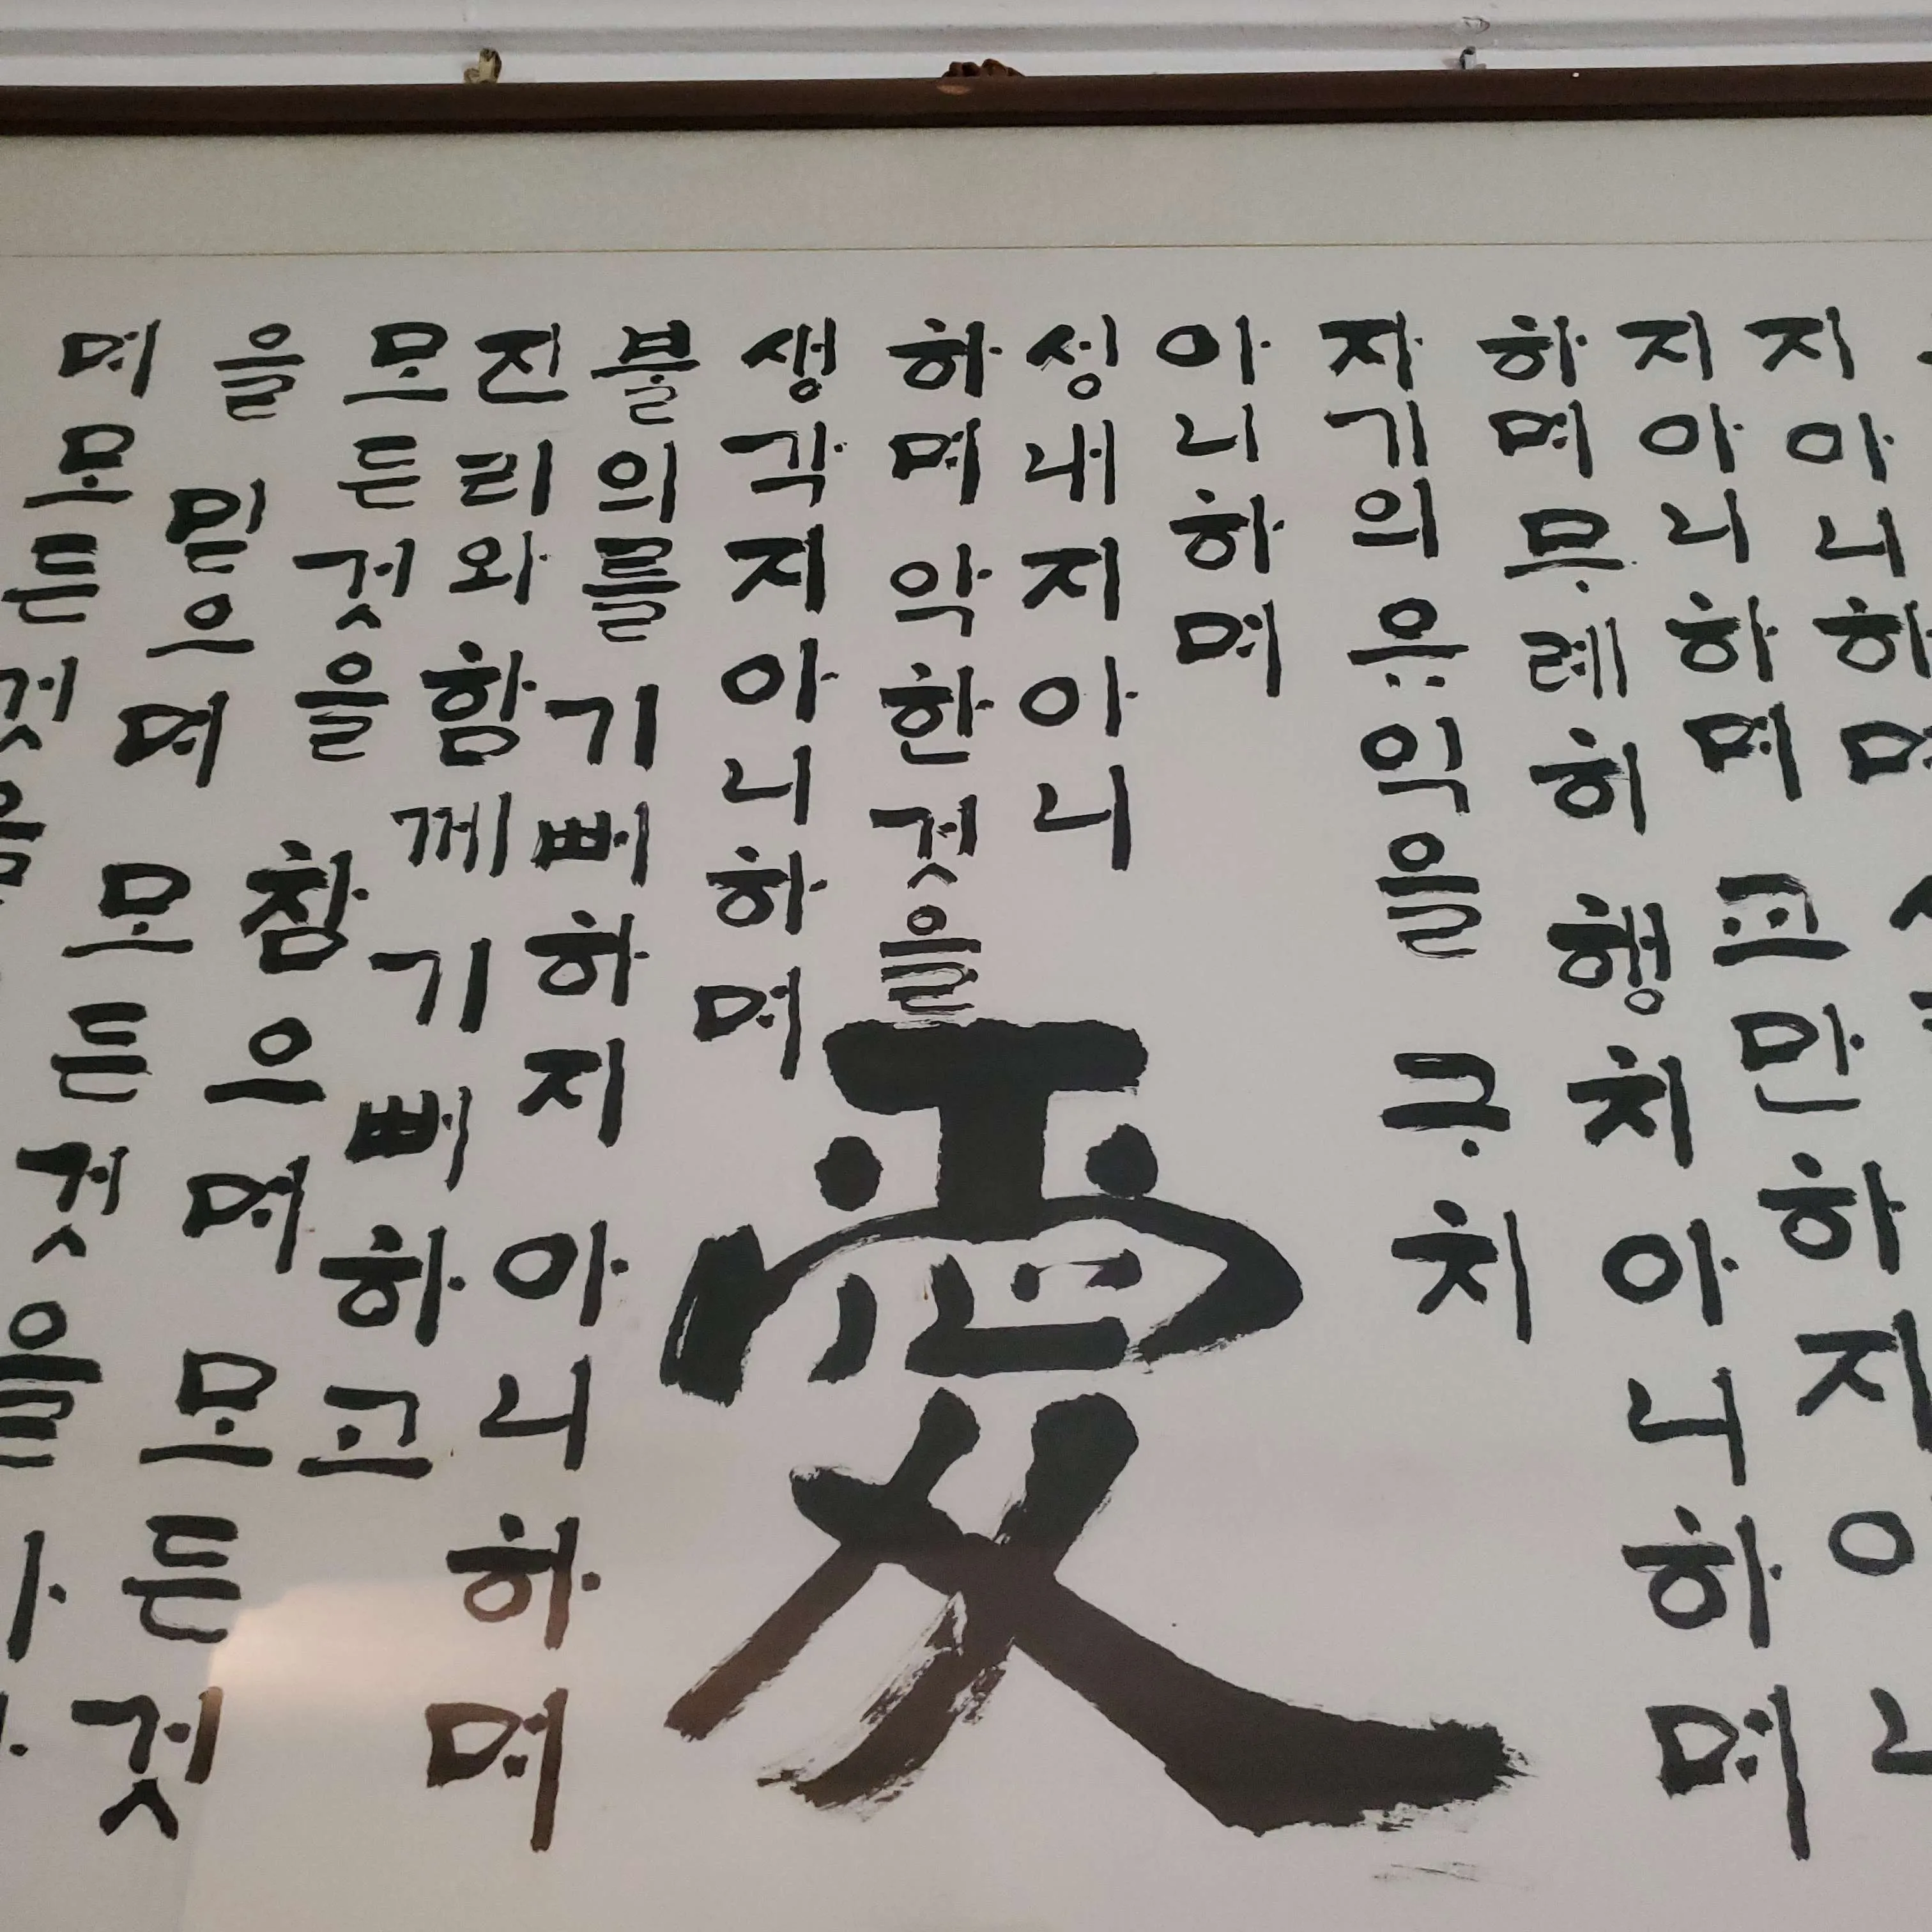 지아니하며
지아니하며 교만하지아니
하며 무례히 행치 아니하며
자기의 유익을 구치
아니하며
성내지아니
하며 악한것을
愛
생각지아니하며
불의를 기뻐하지 아니하며
진리와 함께 기뻐하고
모든것을 참으며 모든것
을 믿으며 모든것을
며 모든것을